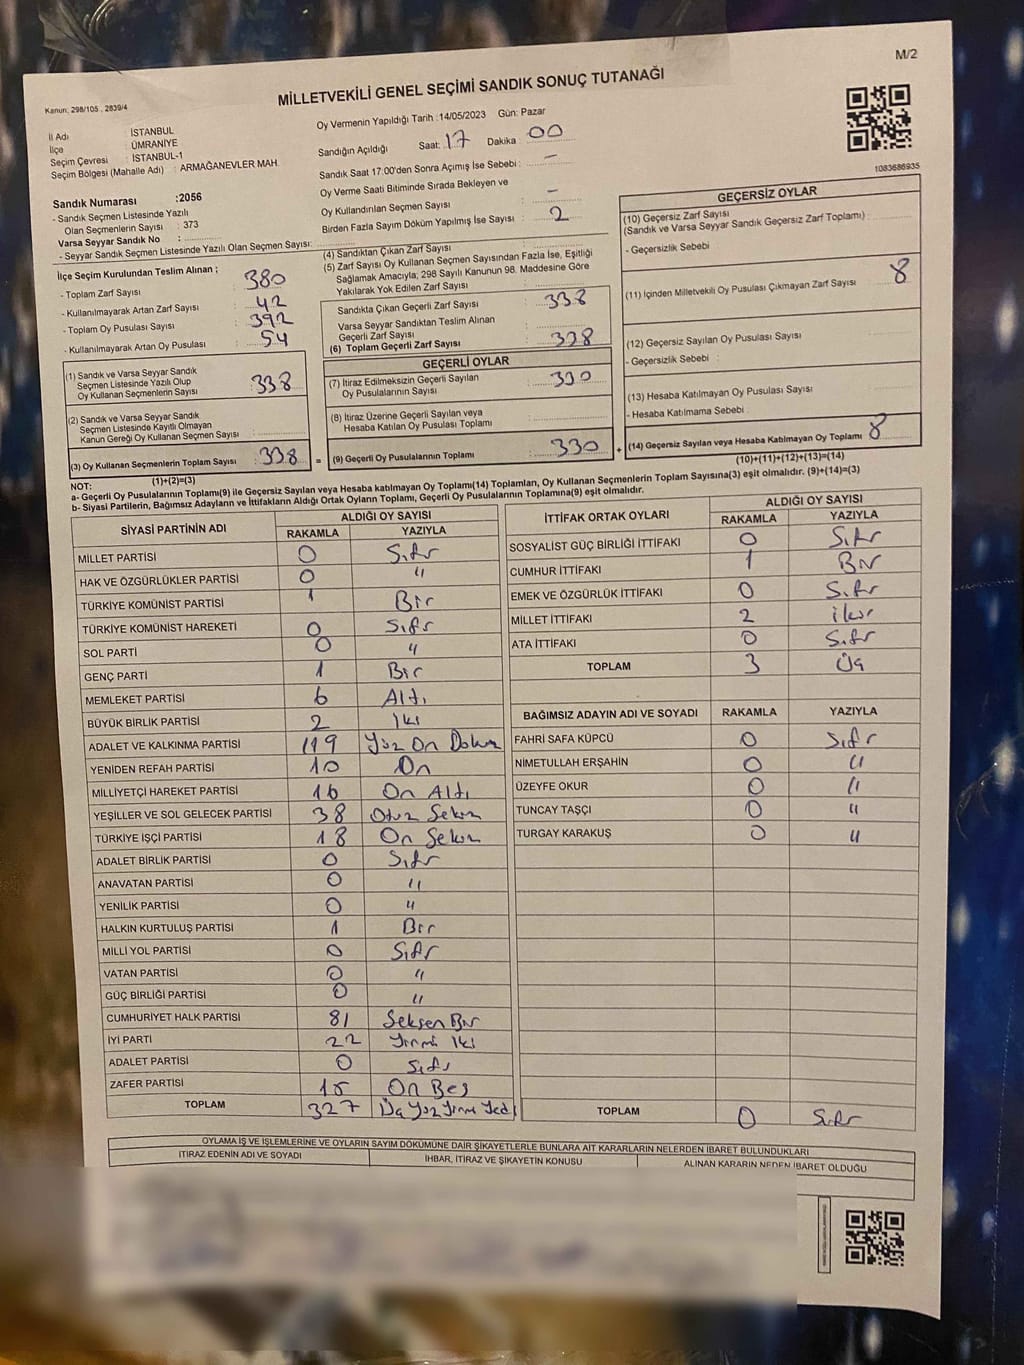 M/2
Kanun: 298/105 , 2839/4
MİLLETVEKİLİ GENEL SEÇİMİ SANDIK SONUÇ TUTANAĞI
İl Adı : İSTANBUL
İlçe : ÜMRANİYE
Seçim Çevresi : İSTANBUL-1
Seçim Bölgesi (Mahalle Adı) : ARMAĞANEVLER MAH.
Sandık Numarası :2056
- Sandık Seçmen Listesinde Yazılı
Olan Seçmenlerin Sayısı : 373
Varsa Seyyar Sandık No :
- Seyyar Sandık Seçmen Listesinde Yazılı Olan Seçmen Sayısı:
Oy Vermenin Yapıldığı Tarih :14/05/2023 Gün: Pazar
Sandığın Açıldığı Saat: 17 Dakika 00
Sandık Saat 17:00'den Sonra Açımış İse Sebebi : -
Oy Verme Saati Bitiminde Sırada Bekleyen ve
Oy Kullandırılan Seçmen Sayısı : -
Birden Fazla Sayım Döküm Yapılmış İse Sayısı : 2
1083686935
İlçe Seçim Kurulundan Teslim Alınan ;
- Toplam Zarf Sayısı : 380
- Kullanılmayarak Artan Zarf Sayısı : 42
- Toplam Oy Pusulası Sayısı : 392
- Kullanılmayarak Artan Oy Pusulası : 54
(1) Sandık ve Varsa Seyyar Sandık
Seçmen Listesinde Yazılı Olup
Oy Kullanan Seçmenlerin Sayısı : 338
(2) Sandık ve Varsa Seyyar Sandık
Seçmen Listesinde Kayıtlı Olmayan
Kanun Gereği Oy Kullanan Seçmen Sayısı :
(3) Oy Kullanan Seçmenlerin Toplam Sayısı : 338
(1)+(2)=(3)
(4) Sandıktan Çıkan Zarf Sayısı :
(5) Zarf Sayısı Oy Kullanan Seçmen Sayısından Fazla İse, Eşitliği
Sağlamak Amacıyla; 298 Sayılı Kanunun 98. Maddesine Göre
Yakılarak Yok Edilen Zarf Sayısı :
Sandıkta Çıkan Geçerli Zarf Sayısı : 338
Varsa Seyyar Sandıktan Teslim Alınan
Geçerli Zarf Sayısı :
(6) Toplam Geçerli Zarf Sayısı : 338
GEÇERLİ OYLAR
(7) İtiraz Edilmeksizin Geçerli Sayılan
Oy Pusulalarının Sayısı : 330
(8) İtiraz Üzerine Geçerli Sayılan veya
Hesaba Katılan Oy Pusulası Toplamı :
= (9) Geçerli Oy Pusulalarının Toplamı : 330
GEÇERSİZ OYLAR
(10) Geçersiz Zarf Sayısı
(Sandık ve Varsa Seyyar Sandık Geçersiz Zarf Toplamı) :
- Geçersizlik Sebebi
(11) İçinden Milletvekili Oy Pusulası Çıkmayan Zarf Sayısı : 8
(12) Geçersiz Sayılan Oy Pusulası Sayısı :
- Geçersizlik Sebebi :
(13) Hesaba Katılmayan Oy Pusulası Sayısı :
- Hesaba Katılmama Sebebi :
+ (14) Geçersiz Sayılan veya Hesaba Katılmayan Oy Toplamı 8
(10)+(11)+(12)+(13)=(14)
NOT:
a- Geçerli Oy Pusulalarının Toplamı(9) ile Geçersiz Sayılan veya Hesaba Katılmayan Oy Toplamı(14) Toplamları, Oy Kullanan Seçmenlerin Toplam Sayısına(3) eşit olmalıdır. (9)+(14)=(3)
b- Siyasi Partilerin, Bağımsız Adayların ve İttifakların Aldığı Ortak Oyların Toplamı, Geçerli Oy Pusulalarının Toplamına(9) eşit olmalıdır.
SİYASİ PARTİNİN ADI ALDIĞI OY SAYISI
RAKAMLA YAZIYLA
MİLLET PARTİSİ 0 Sıfır
HAK VE ÖZGÜRLÜKLER PARTİSİ 0 "
TÜRKİYE KOMÜNİST PARTİSİ 1 Bir
TÜRKİYE KOMÜNİST HAREKETİ 0 Sıfır
SOL PARTİ 0 "
GENÇ PARTİ 1 Bir
MEMLEKET PARTİSİ 6 Altı
BÜYÜK BİRLİK PARTİSİ 2 İki
ADALET VE KALKINMA PARTİSİ 119 Yüz On Dokuz
YENİDEN REFAH PARTİSİ 10 On
MİLLİYETÇİ HAREKET PARTİSİ 16 On Altı
YEŞİLLER VE SOL GELECEK PARTİSİ 38 Otuz Sekiz
TÜRKİYE İŞÇİ PARTİSİ 18 On Sekiz
ADALET BİRLİK PARTİSİ 0 Sıfır
ANAVATAN PARTİSİ 0 "
YENİLİK PARTİSİ 0 "
HALKIN KURTULUŞ PARTİSİ 1 Bir
MİLLİ YOL PARTİSİ 0 Sıfır
VATAN PARTİSİ 0 "
GÜÇ BİRLİĞİ PARTİSİ 0 "
CUMHURİYET HALK PARTİSİ 81 Seksen Bir
İYİ PARTİ 22 Yirmi İki
ADALET PARTİSİ 0 Sıfır
ZAFER PARTİSİ 15 On Beş
TOPLAM 327 Üç Yüz Yirmi Yedi
İTTİFAK ORTAK OYLARI ALDIĞI OY SAYISI
RAKAMLA YAZIYLA
SOSYALİST GÜÇ BİRLİĞİ İTTİFAKI 0 Sıfır
CUMHUR İTTİFAKI 1 Bir
EMEK VE ÖZGÜRLÜK İTTİFAKI 0 Sıfır
MİLLET İTTİFAKI 2 iki
ATA İTTİFAKI 0 Sıfır
TOPLAM 3 Üç
BAĞIMSIZ ADAYIN ADI VE SOYADI RAKAMLA YAZIYLA
FAHRİ SAFA KÜPCÜ 0 Sıfır
NİMETULLAH ERŞAHİN 0 "
ÜZEYFE OKUR 0 "
TUNCAY TAŞÇI 0 "
TURGAY KARAKUŞ 0 "
TOPLAM 0 Sıfır
OYLAMA İŞ VE İŞLEMLERİNE VE OYLARIN SAYIM DÖKÜMÜNE DAİR ŞİKAYETLERLE BUNLARA AİT KARARLARIN NELERDEN İBARET BULUNDUKLARI
İTİRAZ EDENİN ADI VE SOYADI İHBAR, İTİRAZ VE ŞİKAYETİN KONUSU ALINAN KARARIN NEDEN İBARET OLDUĞU